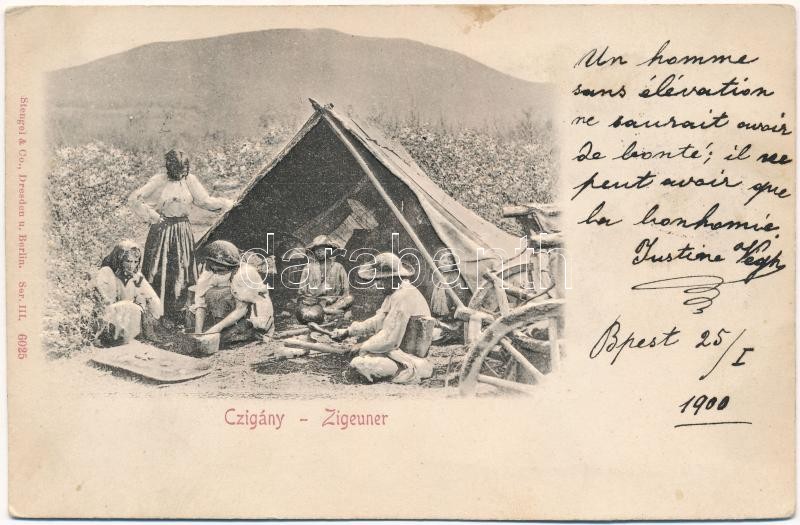 Un homme
sans élévation
ne saurait avoir
de bonté; il ne
peut avoir que
la bonhomie.
Justine Végh
Bpest 25/I
1900
Stengel & Co., Dresden u. Berlin. Ser. III. 6025
darabanth.com
Czigány - Zigeuner